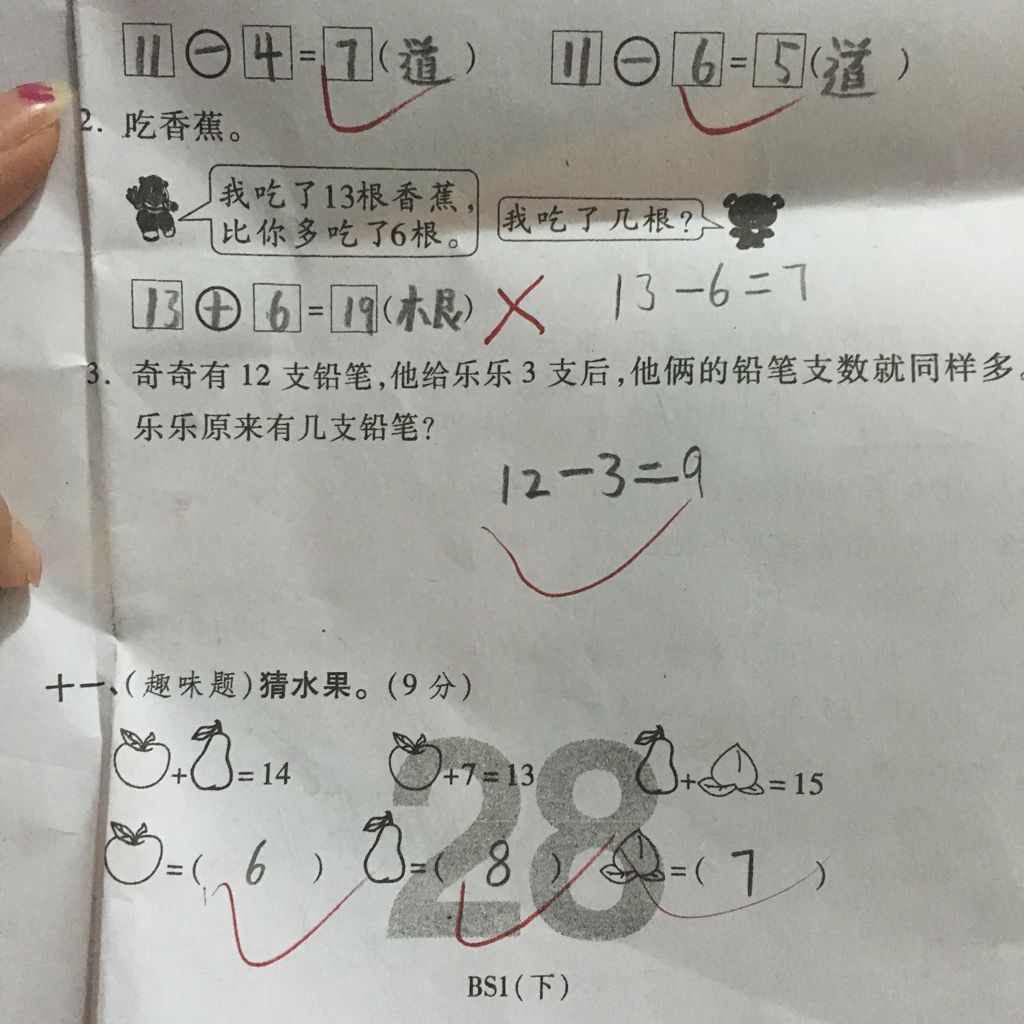 11－4=7(道) 11－6=5(道)
2. 吃香蕉。
我吃了13根香蕉,
比你多吃了6根。
我吃了几根?
13+6=19(根) 13－6=7
3. 奇奇有12支铅笔,他给乐乐3支后,他俩的铅笔支数就同样多。
乐乐原来有几支铅笔?
12－3=9
十一、(趣味题)猜水果。(9分)
+=14 +7=13 +=15
=(6) =(8) =(7)
28
BS1(下)